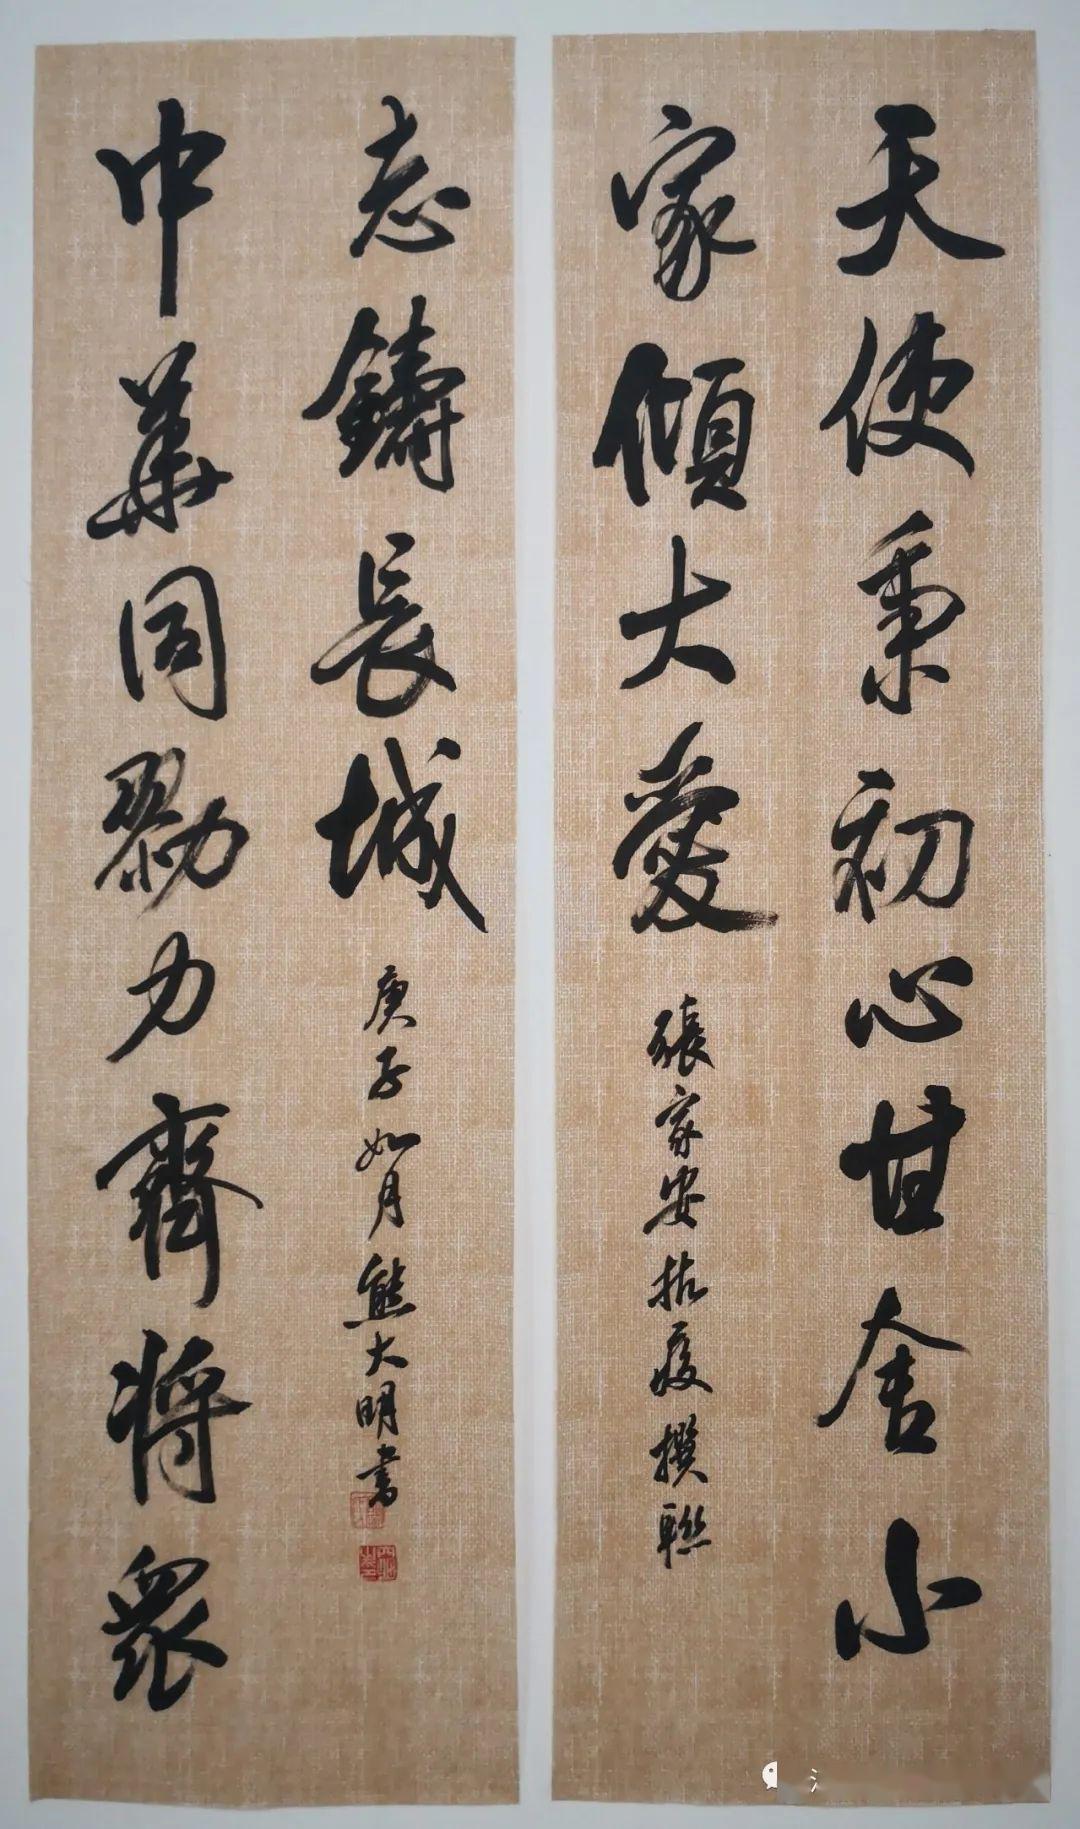 天使秉初心甘舍小
家傾大愛
張家安抗疫撰聯
中華同勠力齊將眾
志鑄長城
庚子如月熊大明書